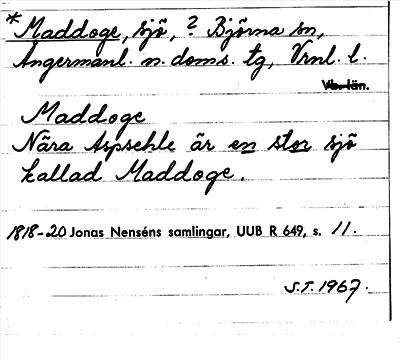 * Maddoge, sjö, ? Björna sn,
Ångermanl. n. doms. tg, Vrnl. l.
Vb. län.
Maddoge
Nära Aspsehle är en stor sjö
kallad Maddoge.
1818-20 Jonas Nenséns samlingar, UUB R 649, s. 11.
S.T. 1967.